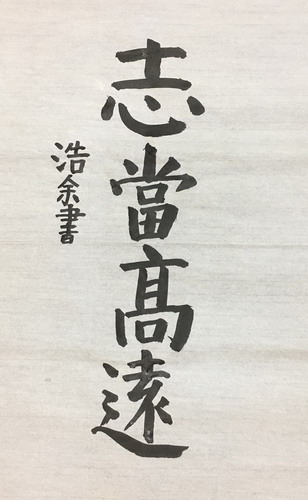 志當髙遠
浩余書